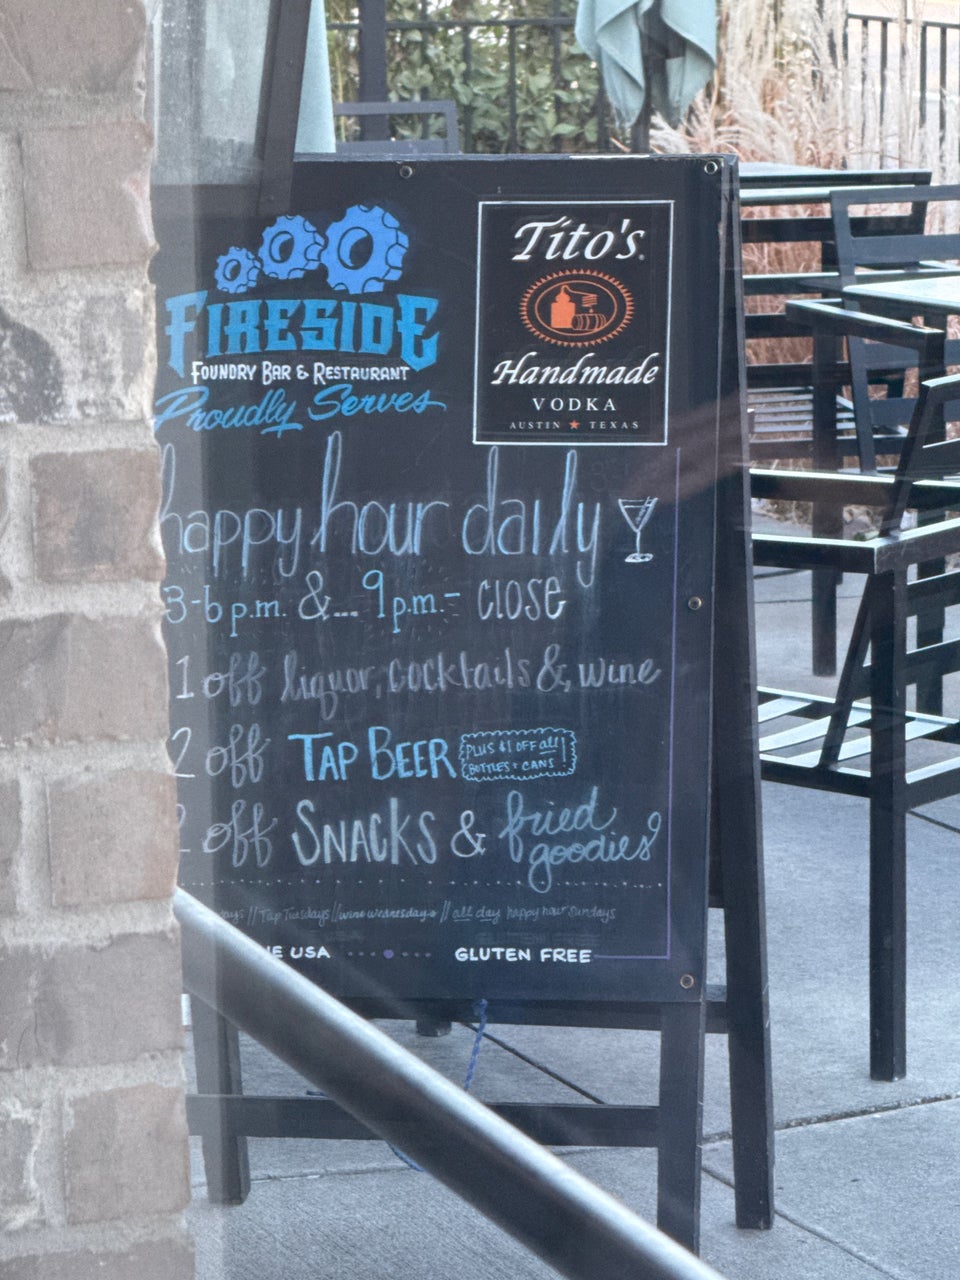 FIRESIDE
FOUNDRY BAR & RESTAURANT
Proudly Serves
Tito's
Handmade
VODKA
AUSTIN ★ TEXAS
happy hour daily
3-6 p.m. &... 9 p.m. - close
1 off liquor, cocktails &, wine
2 off TAP BEER PLUS $1 OFF all BOTTLES + CANS!
2 off SNACKS & fried goodies
// Tap Tuesdays // wine wednesdays // all day happy hour sundays
USA GLUTEN FREE